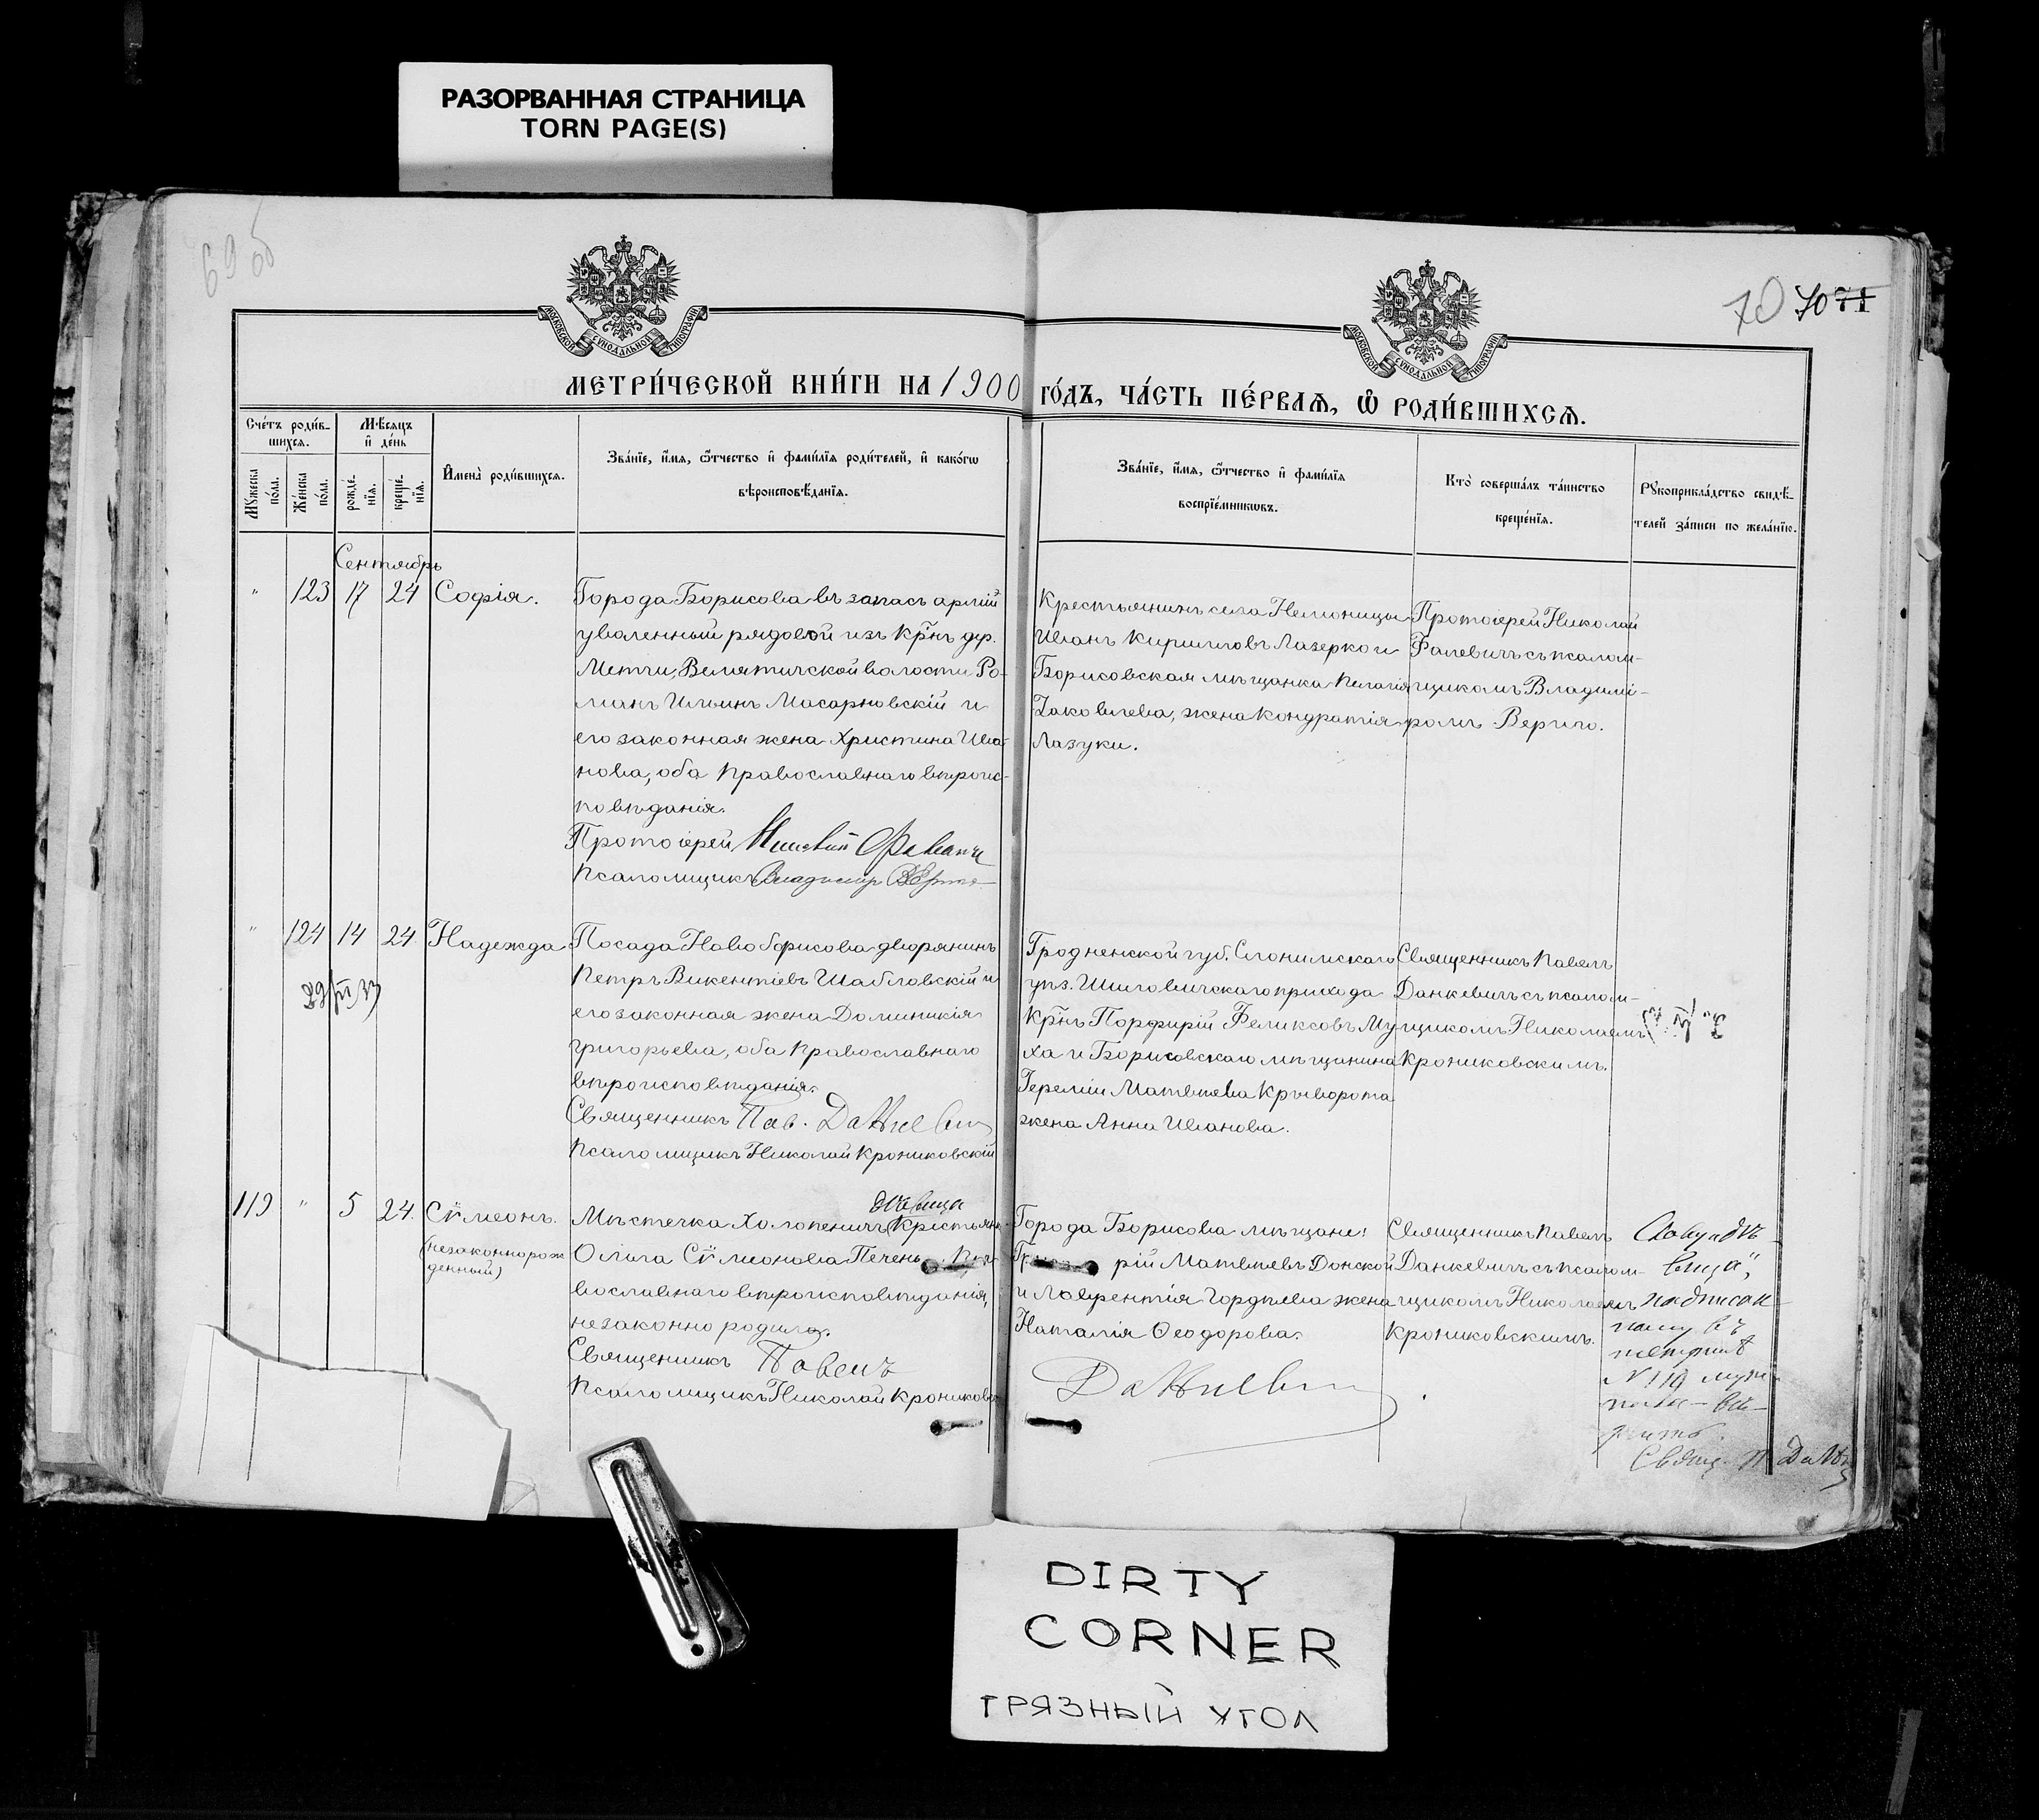 РАЗОРВАННАЯ СТРАНИЦА
TORN PAGE(S)
69 об
70 70 71
МОСКОВСКОЙ СУНОДАЛЬНОЙ ТИПОГРАФІИ
МОСКОВСКОЙ СУНОДАЛЬНОЙ ТИПОГРАФІИ
МЕТРИ́ЧЕСКОЙ КНИ́ГИ НА 1900 ГО́ДЪ, ЧА́СТЬ ПЕ́РВАЯ, Ѡ РОДИ́ВШИХСЯ.
Сче́тъ роди́в-
шихся.
Мѣсяцъ
и де́нь
Мꙋжеска по́ла.
Же́нска по́ла.
рожде́-
нїя.
креще́-
нїя.
Имена̀ роди́вшихся.
Зва́нїе, и́мя, ѻ́тчество и фами́лїя роди́телей, и како́гѡ
вѣроисповѣ́данїя.
Зва́нїе, и́мя, ѻ́тчество и фами́лїя
воспрїе́мникѡвъ.
Кто̀ соверша́лъ та́инство
креще́нїя.
Рꙋкоприкла́дство свидѣ́-
телей за́писи по жела́нїю.
Сентябрь
" 123 17 24 Софія.
Города Борисова въ запасъ арміи
уволенный рядовой изъ крⷭ҇нъ дер.
Метчи, Велятичской волости Ро-
манъ Ильинъ Масарновскій и
его законная жена Христина Ива-
нова, оба православнаго вѣроис-
повѣданія.
Протоіерей Николай Фалевичъ
Псаломщикъ Владимір Вериго
Крестьянинъ села Немоницы
Иванъ Кирилловъ Лазерко и
Борисовская мѣщанка Пелагія
Іаковлева, жена Кондратія
Лазуки.
Протоіерей Николай
Фалевичъ съ псалом-
щикомъ Владимі-
ромъ Вериго.
" 124 14 24 Надежда
Посада Ново борисова дворянинъ
Петръ Викентіевъ Шабловскій и
его законная жена Доминикія
Григорьева, оба православнаго
вѣроисповѣданія.
Священникъ Пав. Данкевич
Псаломщикъ Николай Крониковскій
Гродненской губ. Слонимскаго
уѣз. Шиловичскаго прихода
крⷭ҇нъ Порфирій Феликсовъ Му-
ха и Борисовскаго мѣщанина
Іереміи Матвѣева Криворота
жена Анна Иванова.
Священникъ Павелъ
Данкевичъ съ псалом-
щикомъ Николаемъ
Крониковскимъ.
119 " 5 24. Сѵмеонъ.
(незаконнорож
денный)
дѣвица
Мѣстечка Холопеничъ крестьянк
Ольга Сѵмеонова Печень
вославнаго вѣроисповѣданія,
незаконно родила.
Священникъ Павелъ
Псаломщикъ Николай Крониковс
Города Борисова мѣщане:
рій Матвѣевъ Донской
и Лаврентія Гордѣева жена
Наталія Ѳеодорова.
Данкевич
Священникъ Павелъ
Данкевичъ съ псалом-
щикомъ Николаемъ
Крониковскимъ.
Слову „дѣ-
вица",
надписан-
ному въ
метрикѣ
№ 119 муж.
пола – вѣ-
рить.
Свящ. П. Данк
DIRTY
CORNER
ГРЯЗНЫЙ УГОЛ